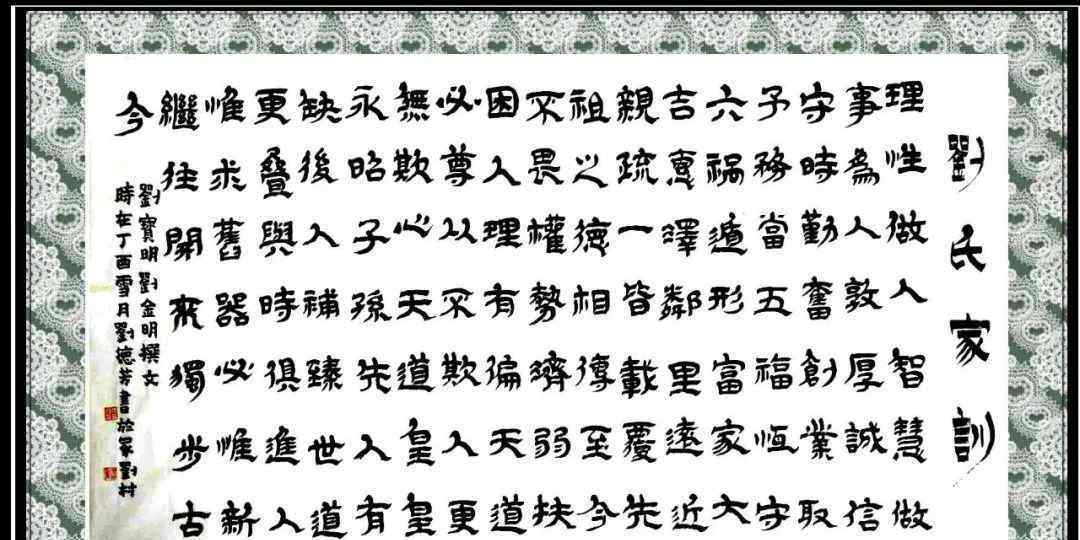 劉氏家訓
理性做人智慧做
事為人敦厚誠信
守時勤奮創業取
予務當五福恆守
六禍遁形富家大
吉惠澤鄰里遠近
親疏一皆載覆先
祖之德相傳至今
不畏權勢濟弱扶
困人理有偏天道
必尊以不欺人更
無欺心天道皇皇
永昭子孫先人有
缺後人補臻世道
更疊與時俱進人
惟求舊器必惟新
繼往開來獨步古
今
劉寶明劉金明撰文
時在丁酉雪月劉德芳書於劉村